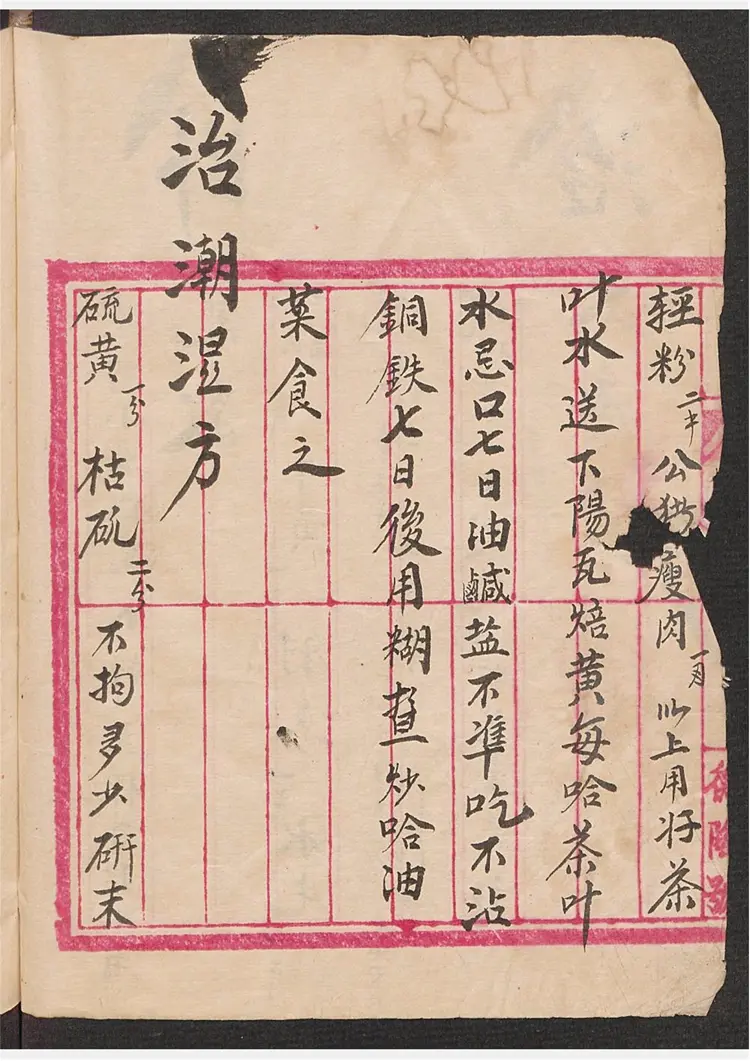 輕粉 二个 公猪瘦肉 一両 以上用好茶
叶水送下陽瓦焙黄每哈茶叶
水忌口七日油鹹盐不準吃不沾
銅鉄七日後用糊查炒哈油
菜食之
治潮湿方
硫黄 一分 枯矾 二分 不拘多少研末